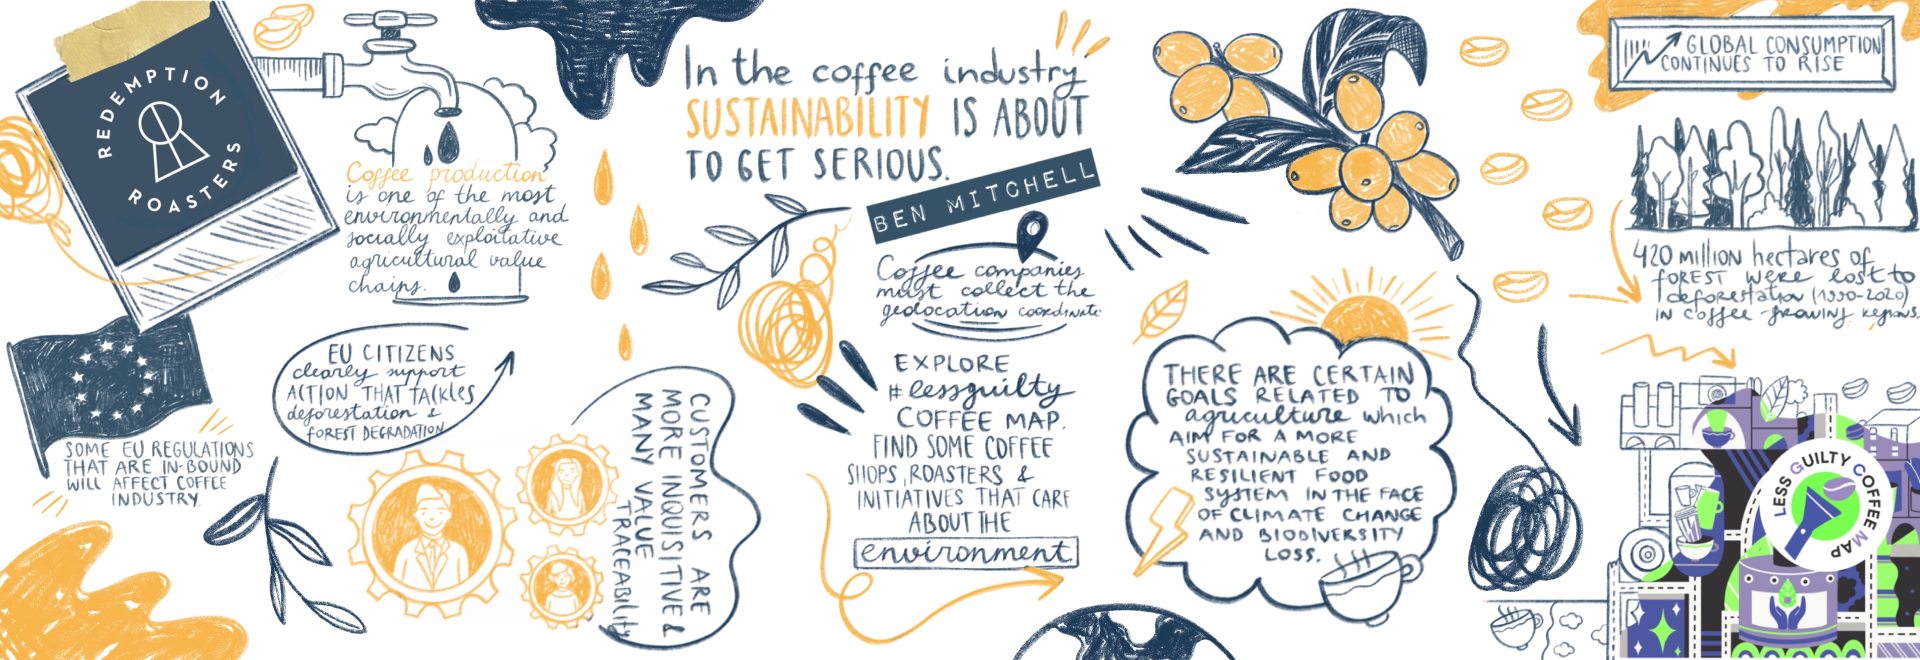 REDEMPTION
ROASTERS
Coffee production
is one of the most
environmentally and
socially exploitative
agricultural value
chains.
SOME EU REGULATIONS
THAT ARE IN-BOUND
WILL AFFECT COFFEE
INDUSTRY.
EU CITIZENS
clearly support
ACTION THAT TACKLES
deforestation &
FOREST DEGRADATION
CUSTOMERS ARE
MORE INQUISITIVE &
MANY VALUE
TRACEABILITY
In the coffee industry
SUSTAINABILITY IS ABOUT
TO GET SERIOUS.
BEN MITCHELL
Coffee companies
must collect the
geolocation coordinate
EXPLORE
#lessguilty
COFFEE MAP.
FIND SOME COFFEE
SHOPS, ROASTERS &
INITIATIVES THAT CARE
ABOUT THE
environment.
THERE ARE CERTAIN
GOALS RELATED TO
agriculture which
AIM FOR A MORE
SUSTAINABLE AND
RESILIENT FOOD
SYSTEM IN THE FACE
OF CLIMATE CHANGE
AND BIODIVERSITY
LOSS.
GLOBAL CONSUMPTION
CONTINUES TO RISE
420 million hectares of
FOREST were lost to
deforestation (1990-2020)
IN coffee-growing regions.
LESS GUILTY COFFEE MAP